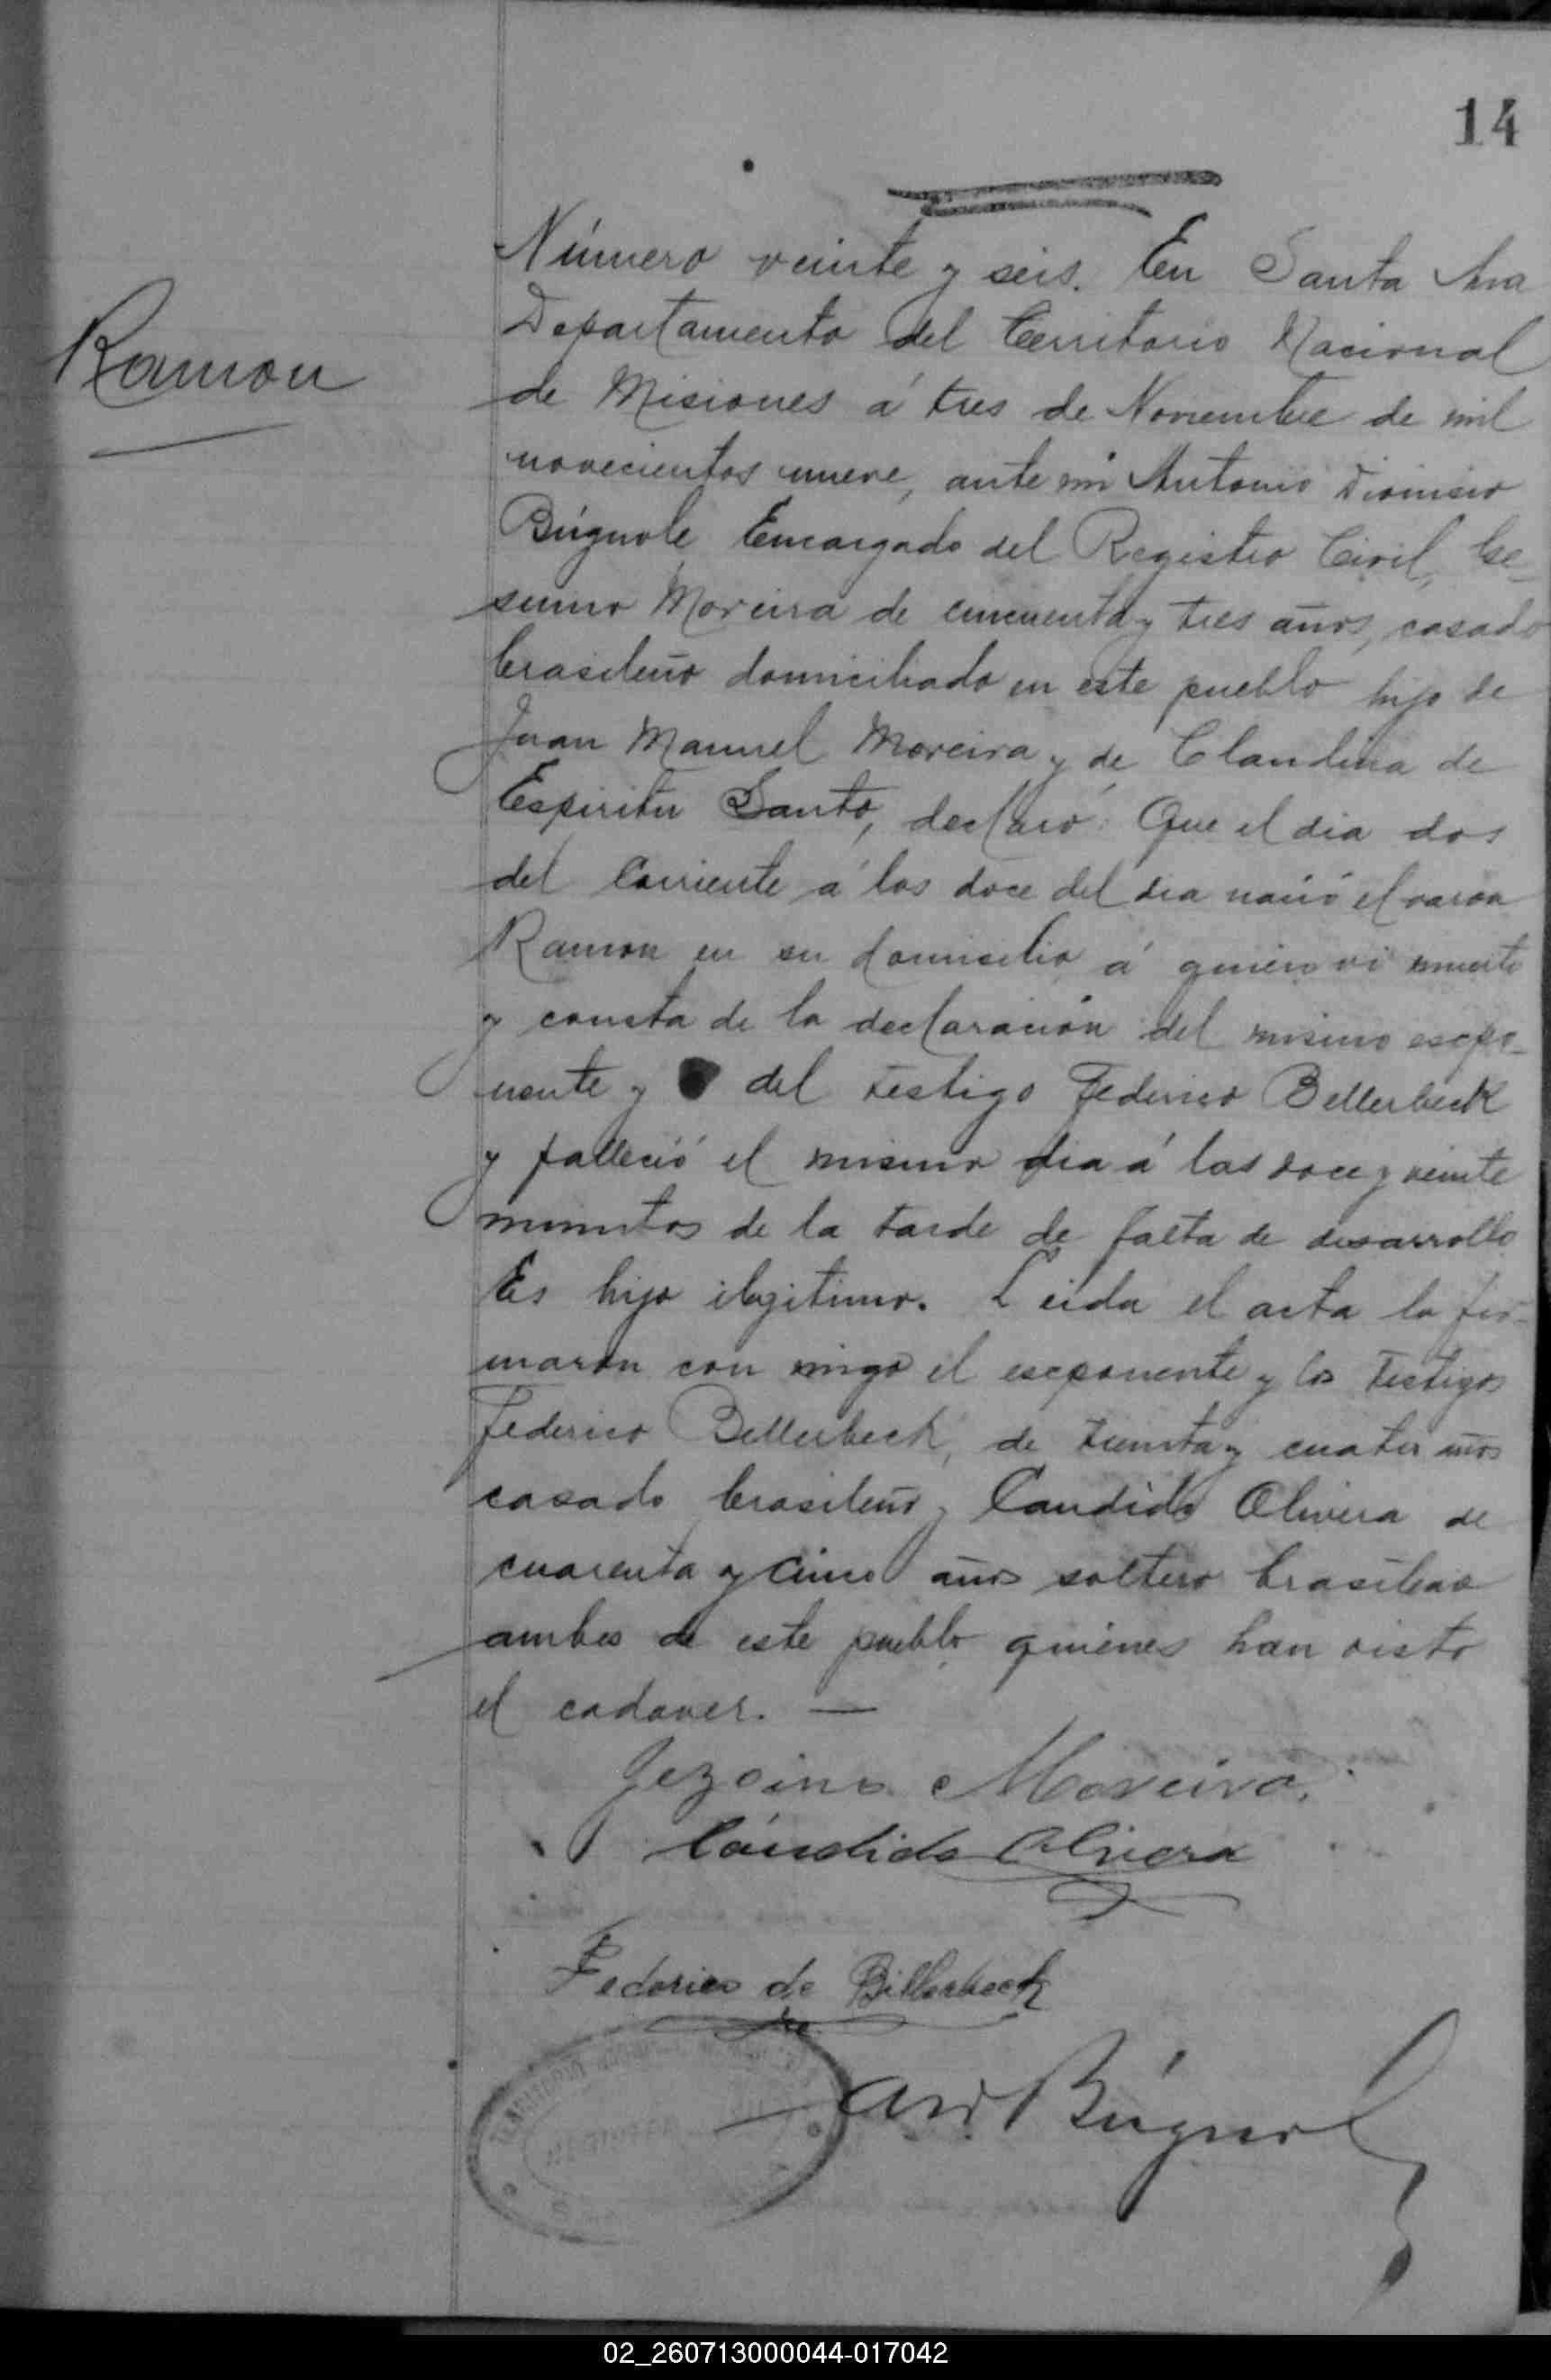 14
Número veinte y seis. En Santa Ana
Departamento del Territorio Nacional
Ramon
de Misiones á tres de Noviembre de mil
novecientos nueve, ante mi Antonio Dionisio
Búgnole Encargado del Registro Civil,
Moreira de cincuenta y tres años, casado
brasileño domiciliado en este pueblo hijo de
Juan Manuel Moreira y de Claudina de
Espiritu Santo, declaró: Que el dia dos
del corriente á las doce del dia nació el varon
Ramon en su domicilio á quien vi muerto
y consta de la declaración del mismo escpo-
nente y del testigo Federico Bellerbeck
y falleció el mismo dia á las doce y veinte
minutos de la tarde de falta de desarrollo
Es hijo ilegitimo. Leida el acta la fir-
maron con migo el escponente y los testigos
Federico Bellerbeck, de treinta y cuatro años
casado brasileño y Candido Olivera de
cuarenta y cinco años soltero brasileño
ambos de este pueblo quienes han visto
el cadaver. —
Jezoino Moreira.
Cándido Olivera
Federico de Billerbeck
Búgnol
02_260713000044-017042